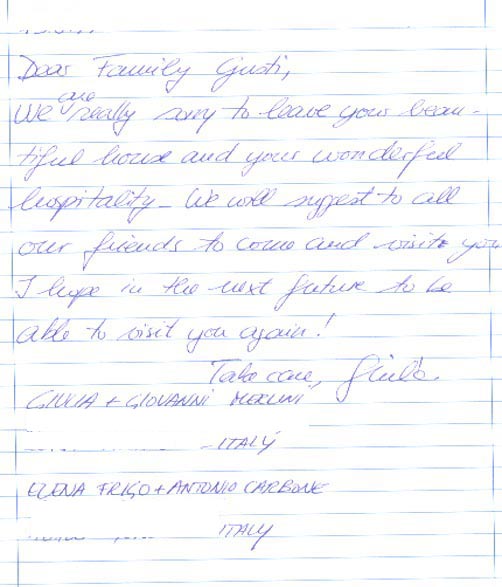 Dear Family Giusti,
We are really sorry to leave your beau-
tiful house and your wonderful
hospitality. We will suggest to all
our friends to come and visite you
I hope in the next future to be
able to visit you again!
Take care, Giulia
GIULIA + GIOVANNI
ITALY
ELENA FRIGO + ANTONIO CARBONE
ITALY